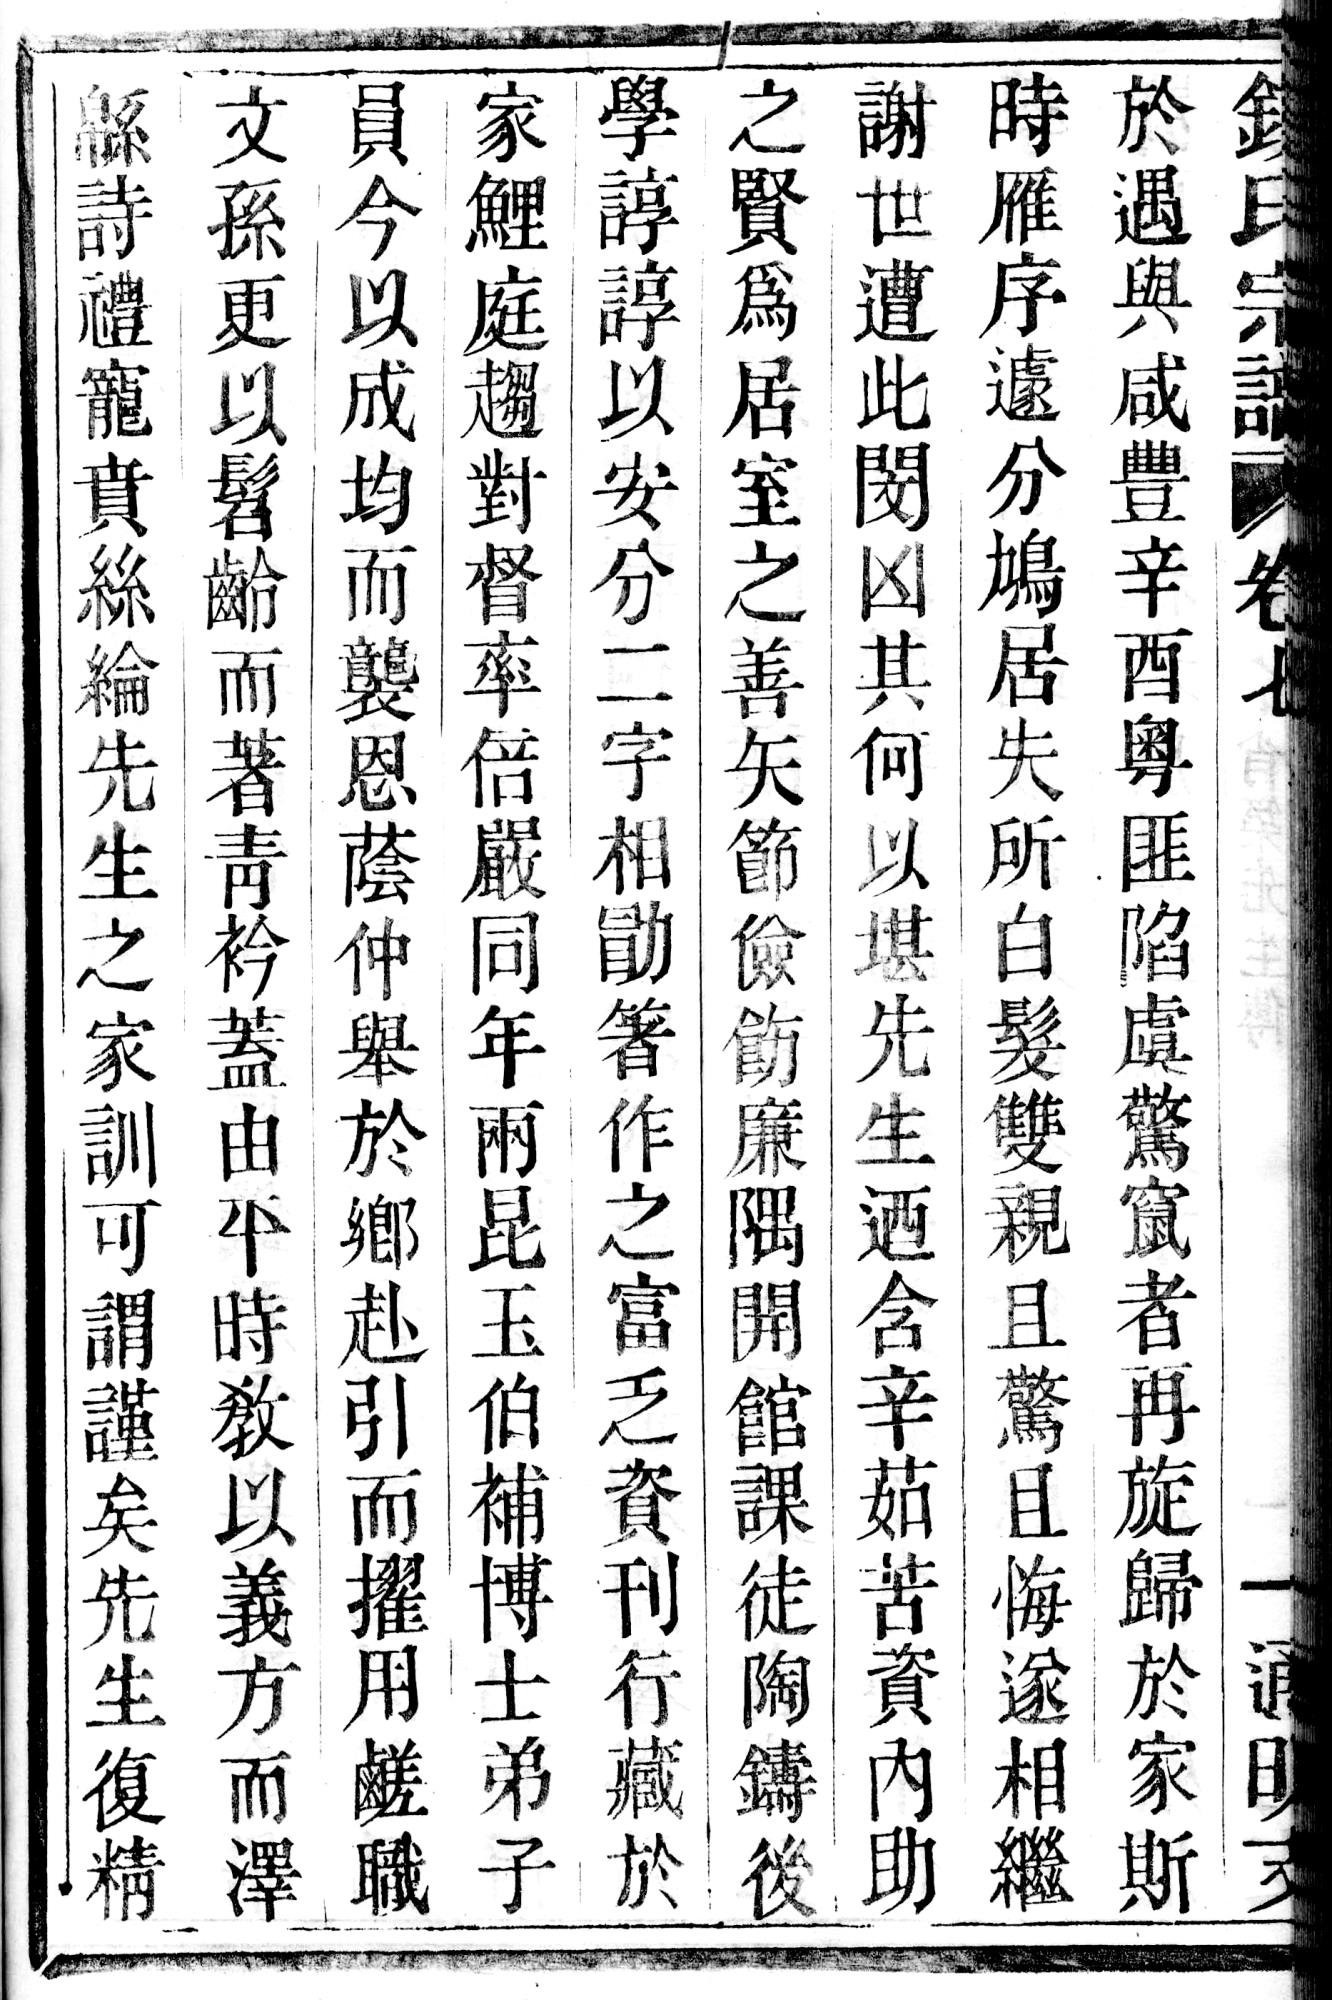 氏宗譜 卷七 一 通明
於遇與咸豐辛酉粵匪陷虞驚竄者再旋歸於家斯
時雁序遽分鳩居失所白髮雙親且驚且悔遂相繼
謝世遭此閔凶其何以堪先生迺含辛茹苦資內助
之賢爲居室之善矢節儉飭廉隅開館課徒陶鑄後
學諄諄以安分二字相勖箸作之富乏資刊行藏於
家鯉庭趨對督率倍嚴同年兩昆玉伯補博士弟子
員今以成均而襲恩蔭仲舉於鄉赴引而擢用鹺職
文孫更以髫齡而著青衿蓋由平時教以義方而澤
緜詩禮寵賁絲綸先生之家訓可謂謹矣先生復精